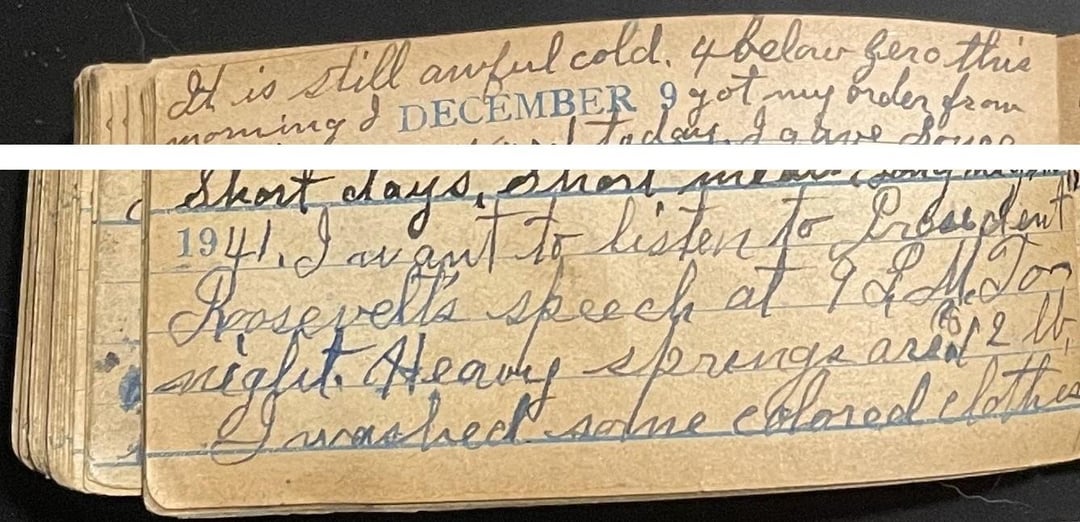 It is still awful cold. 4 below zero this
morning I DECEMBER 9 got my order from
today. I gave some
Short days, short
1941. I want to listen to President
Roosevelt's speech at 9 P.M. Ton
night. Heavy springs are 12 lb.
I washed some colored clothes